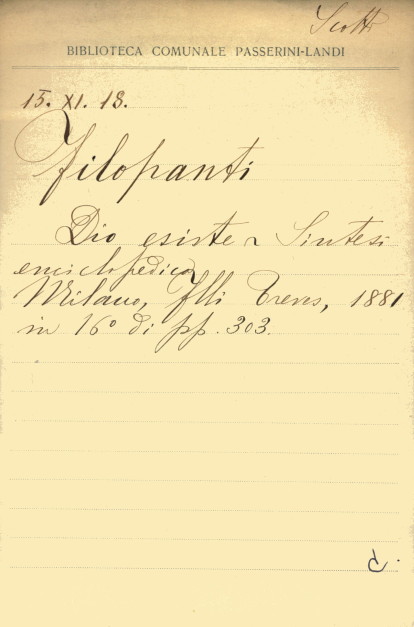 Scotti
BIBLIOTECA COMUNALE PASSERINI-LANDI
15. XI. 18.
Filopanti
Dio esiste - Sintesi
enciclopedica
Milano, F.lli Treves, 1881
in 16° di pp. 303.